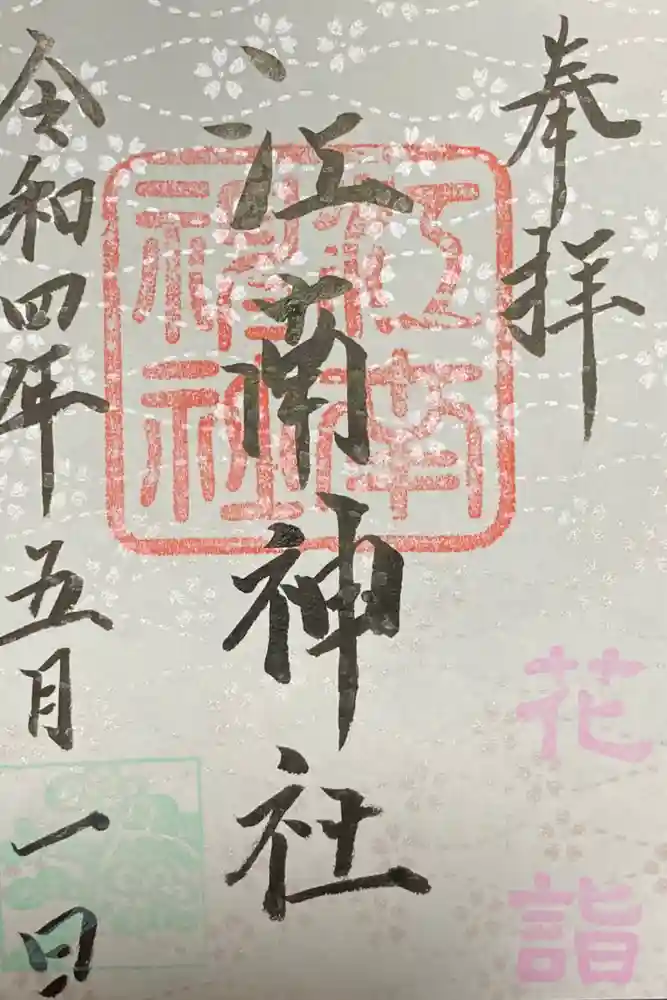 奉拝
花詣
江南神社
江南神社
令和四年五月一日